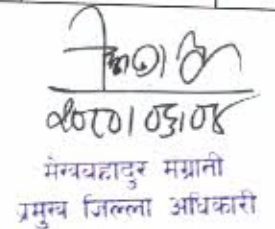 २०८०।०६।०४
मेखबहादुर मग्राती
प्रमुख जिल्ला अधिकारी